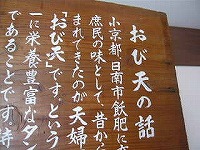 おび天の話
小京都日南市飫肥に
庶民の味として、昔か
まれてきたのが天婦
「おび天」です。という
一に栄養豊富なタン
であることです。特